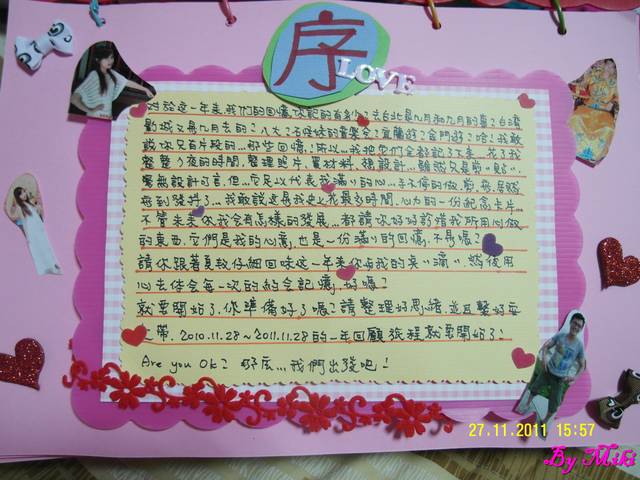 序
LOVE
對於這一年來,我們的回憶,你記的有多少?去台北是幾月和幾月的事?台灣
歡城又是幾月去的?八大?五月天的音樂會?宜蘭遊?金門遊?哈!我敢
說你只有片段的...那些回憶!所以...我把它們全部記了下來...花了我
整整 夜的時間,整理照片、買材料、想設計... 雖然又是剪、貼、
毫無設計可言,但...它足以代表我滿滿的心...
到發抖了...我敢說這是我史上花最多時間、心力的一份紀念卡片...
不管未來你我會有怎樣的發展...都請你好好珍惜我所用心做
的東西,它們是我的心意,也是一份滿滿的回憶,不是嗎?
請你跟著夏教仔細回味這一年來你與我的點點滴滴,然後用
心去体會每一次的約會記憶,好嗎?
就要開始了,你準備好了嗎?請整理好思緒,並且繫好安
全帶,2010.11.28~2011.11.28的一年回顧旅程就要開始了!
Are you Ok? 好広...我們出發吧!
27.11.2011 15:57
By Miki